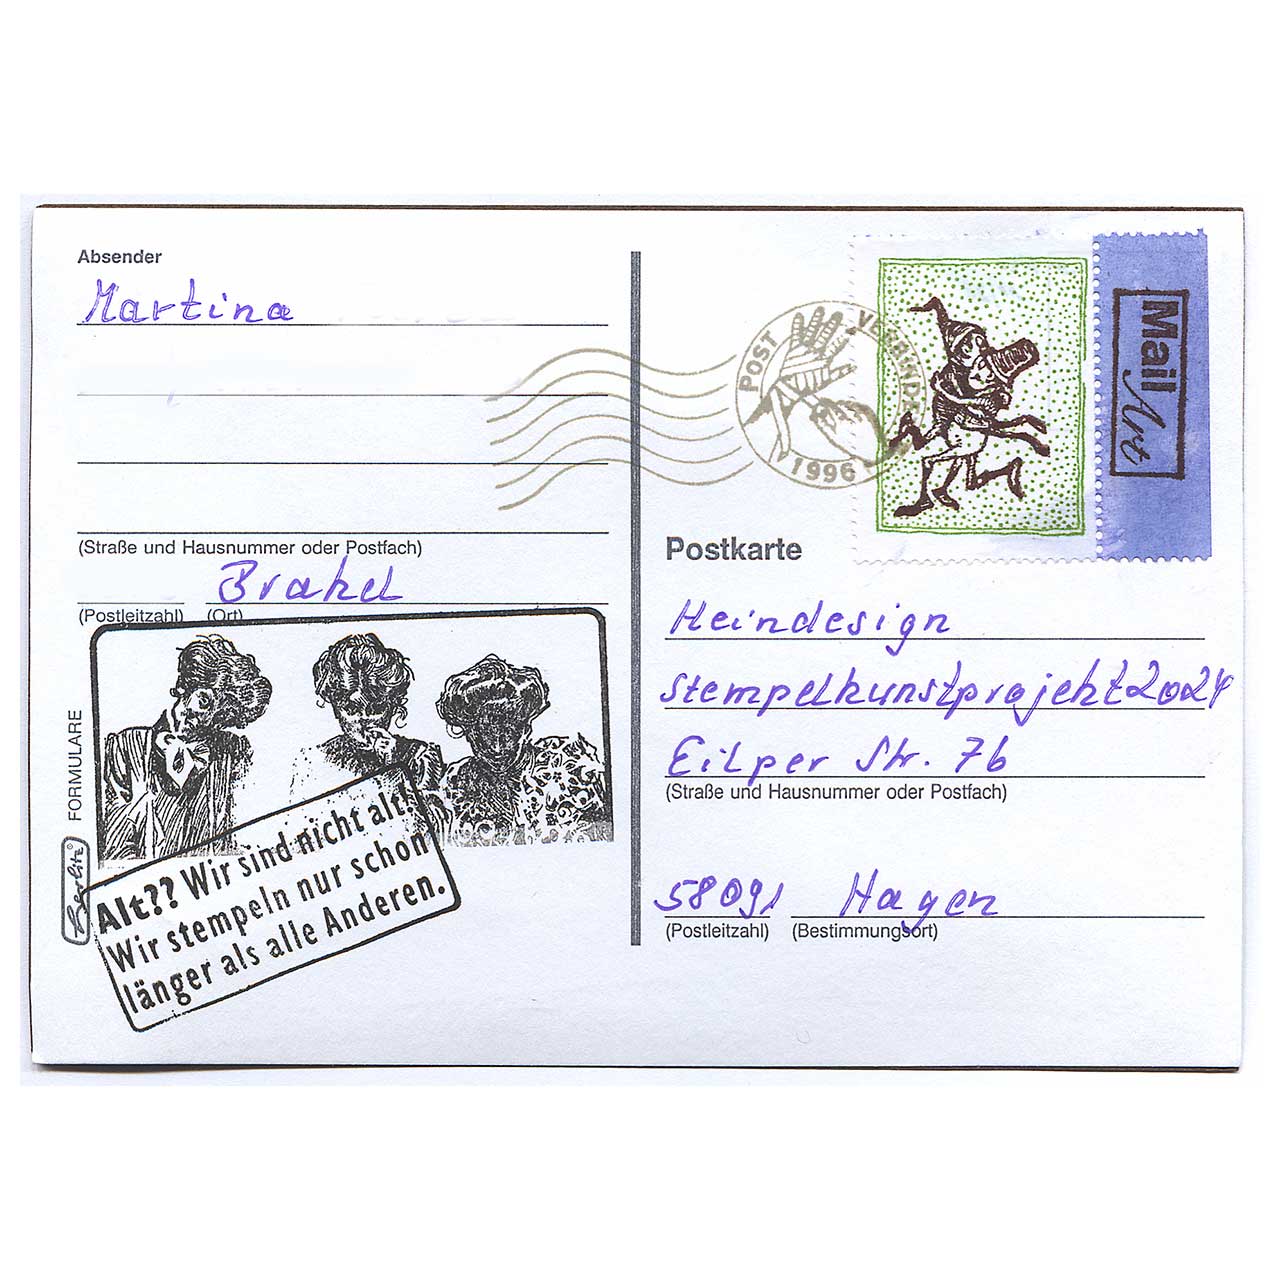 Absender
Martina
(Straße und Hausnummer oder Postfach)
Brakel
(Postleitzahl) (Ort)
FORMULARE
Berlitz
Alt?? Wir sind nicht alt!
Wir stempeln nur schon
länger als alle Anderen.
POST
1996
Mail Art
Postkarte
Heindesign
Stempelkunstprojekt 2024
Eilper Str. 76
(Straße und Hausnummer oder Postfach)
58091 Hagen
(Postleitzahl) (Bestimmungsort)